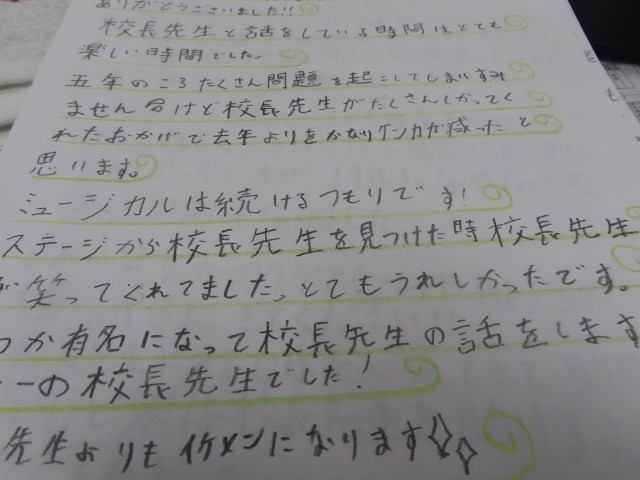 ありがとうございました!!
校長先生と話をしている時間はとても
楽しい時間でした。
五年のころたくさん問題を起こしてしまいすみ
ませんけど校長先生がたくさんしかってく
れたおかげで去年よりもかなりケンカが減ったと
思います。
ミュージカルは続けるつもりです!
ステージから校長先生を見つけた時校長先生
が笑ってくれてました。とてもうれしかったです。
つか有名になって校長先生の話をします
一の校長先生でした!
先生よりもイケメンになります